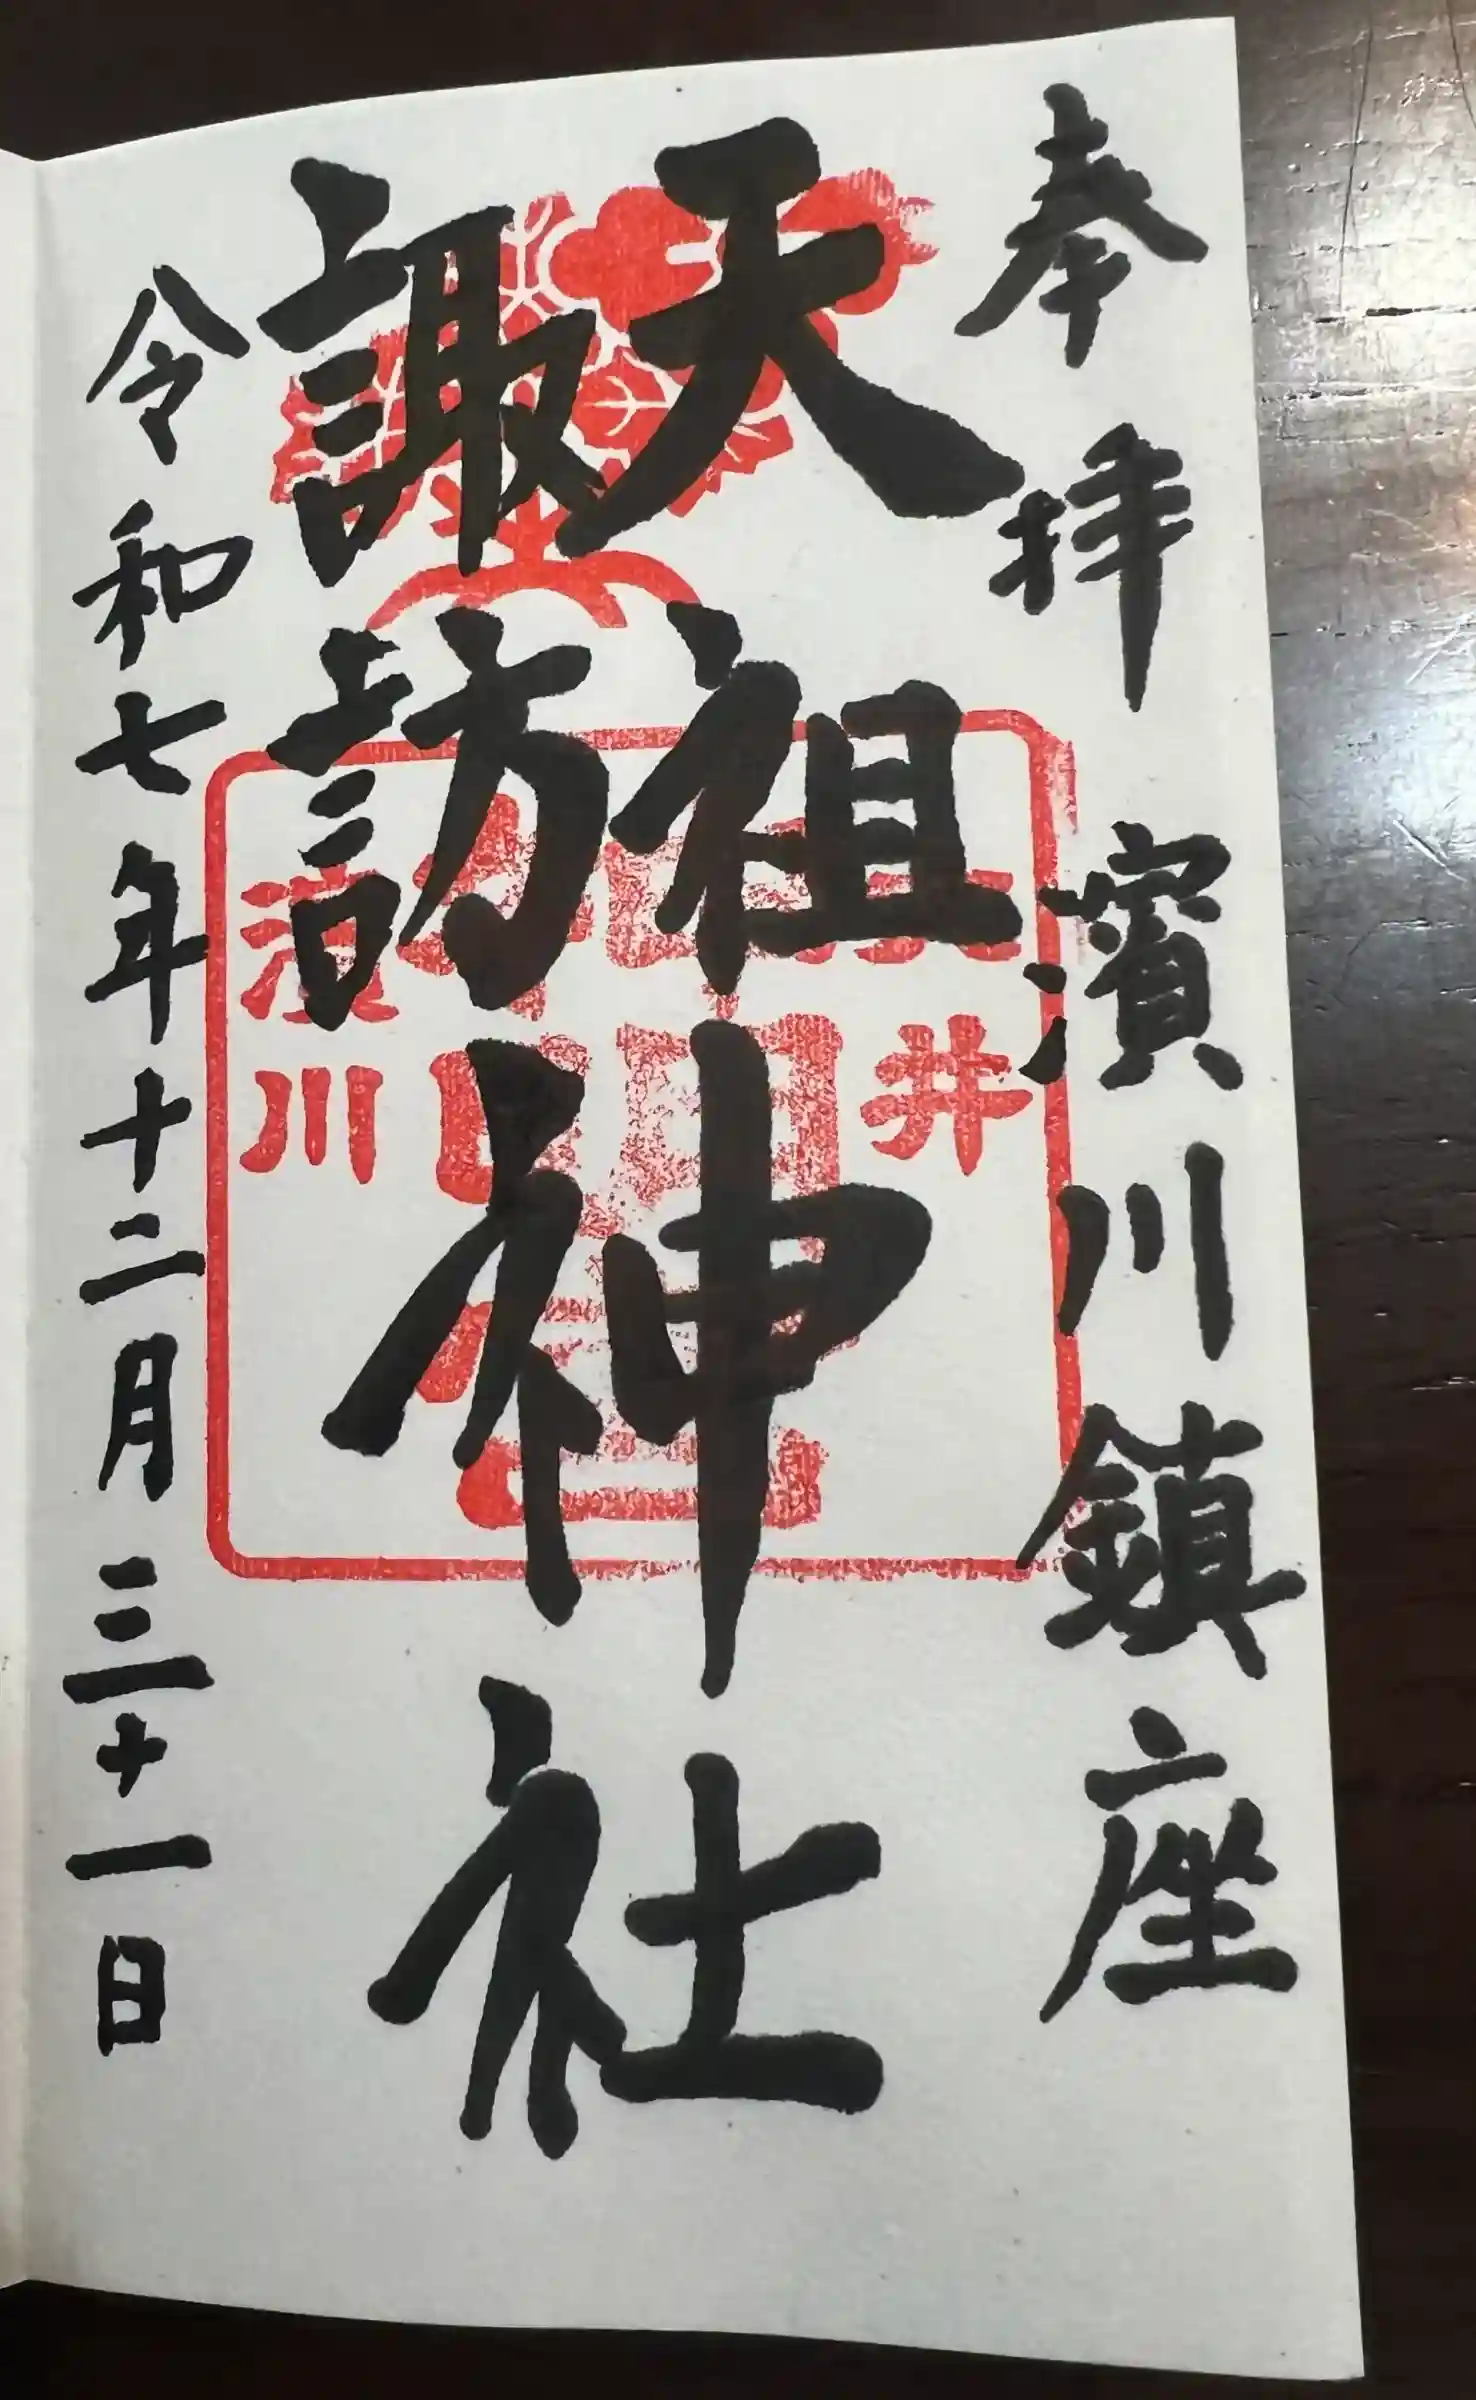 奉拝 濱川鎮座
天祖
諏訪
神社
令和七年十二月三十一日
大井
濱川